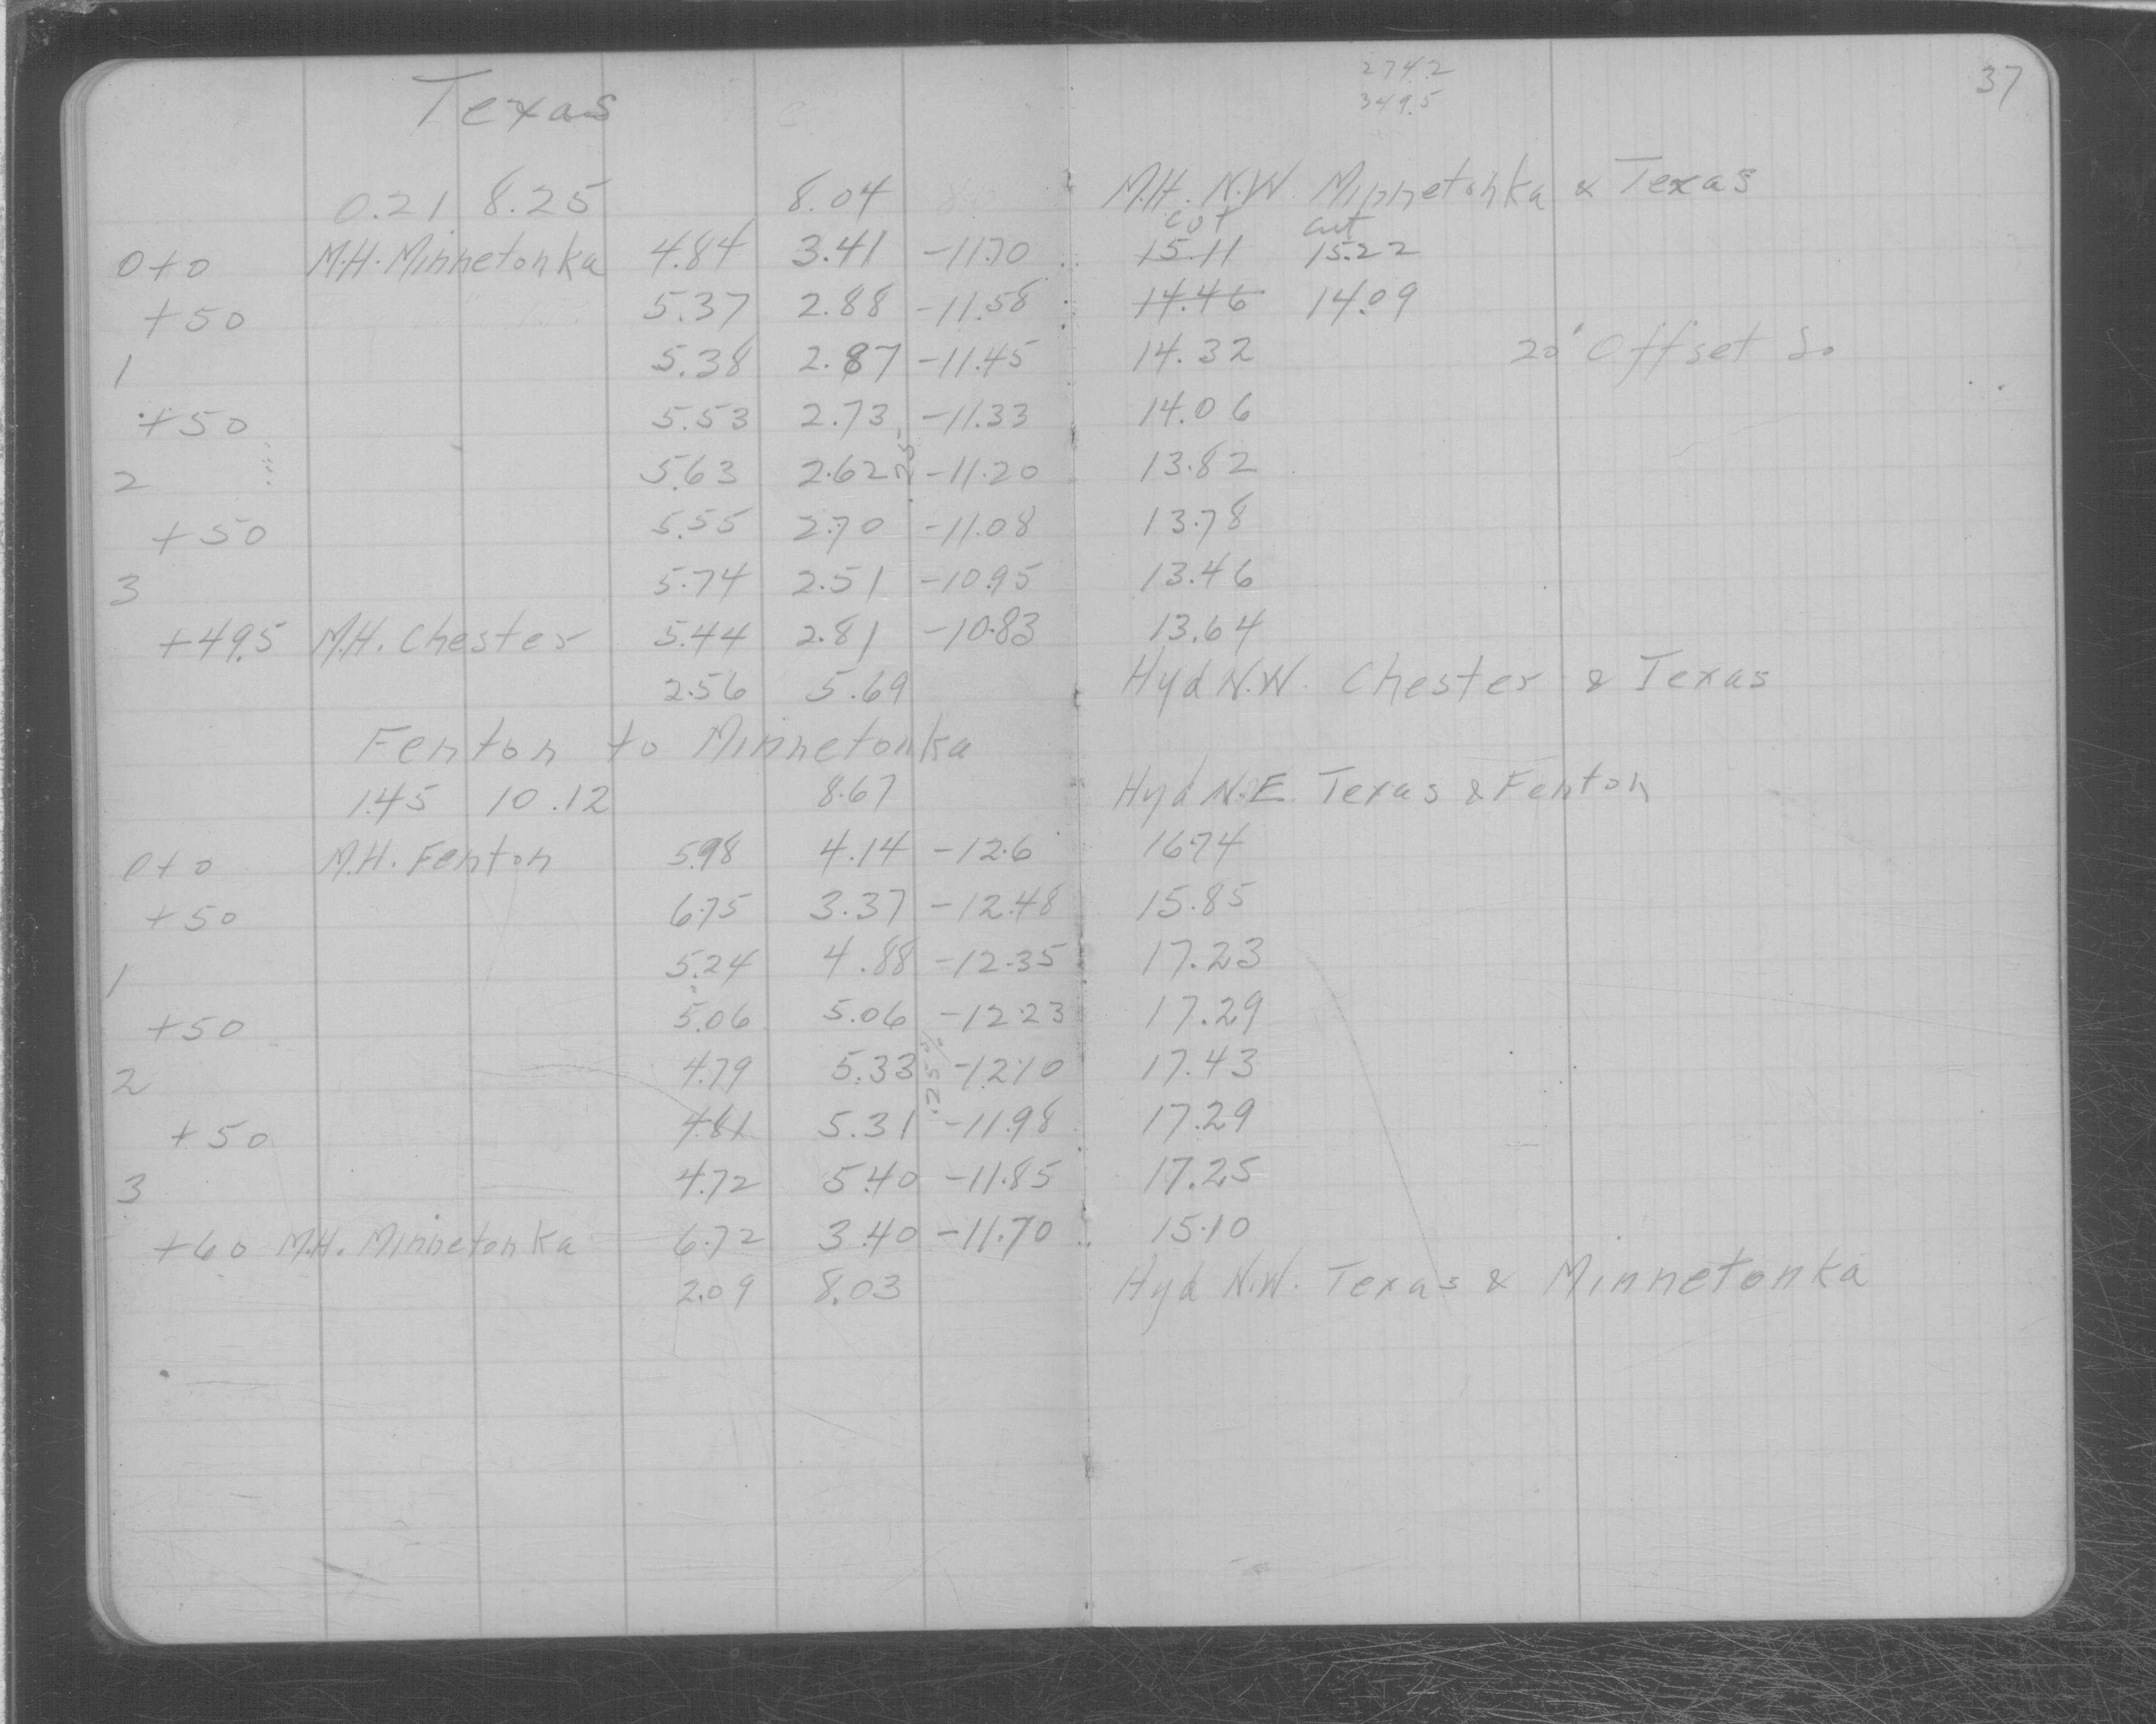 Texas
2742
349.5
37
0.21 8.25 8.04 M.H. N.W. Minnetonka & Texas
cut cut
0+0 M.H. Minnetonka 4.84 3.41 -11.70 15.11 15.22
+50 5.37 2.88 -11.58 14.46 14.09
1 5.38 2.87 -11.45 14.32 20' Offset So
+50 5.53 2.73 -11.33 14.06
2 5.63 2.62 .25 -11.20 13.82
+50 5.55 2.70 -11.08 13.78
3 5.74 2.51 -10.95 13.46
+49.5 M.H. Chester 5.44 2.81 -10.83 13.64
2.56 5.69 Hyd N.W. Chester & Texas
Fenton to Minnetonka
1.45 10.12 8.67 Hyd N.E. Texas & Fenton
0+0 M.H. Fenton 5.98 4.14 -12.6 16.74
+50 6.75 3.37 -12.48 15.85
1 5.24 4.88 -12.35 17.23
+50 5.06 5.06 -12.23 17.29
2 4.79 5.33 .25% -12.10 17.43
+50 4.81 5.31 -11.98 17.29
3 4.72 5.40 -11.85 17.25
+60 M.H. Minnetonka 6.72 3.40 -11.70 15.10
2.09 8.03 Hyd N.W. Texas & Minnetonka